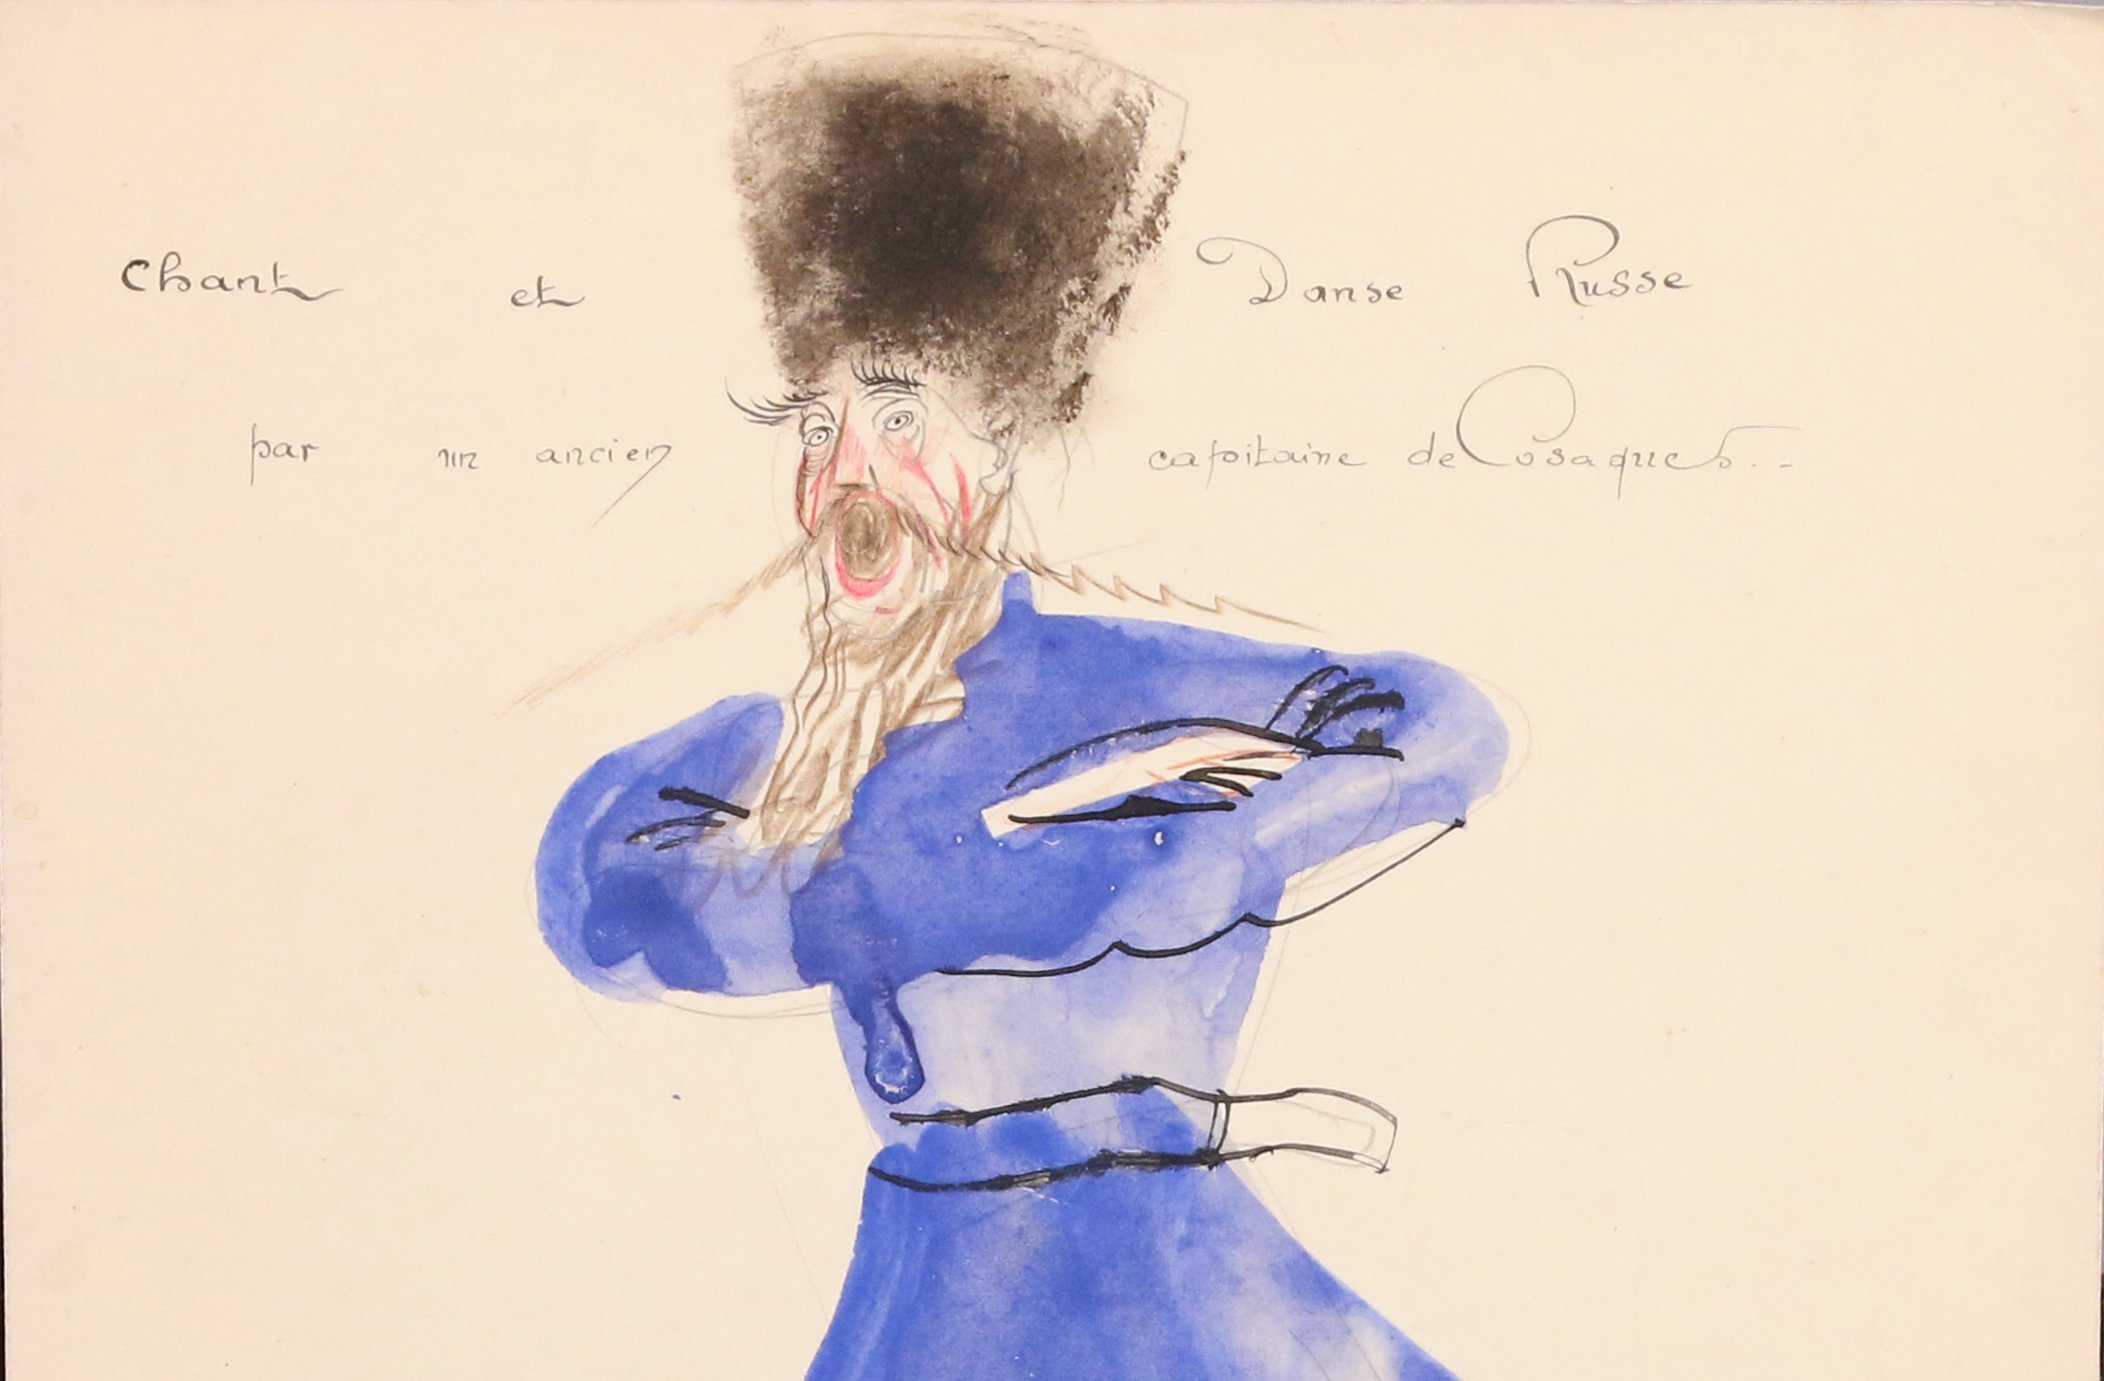 Chant et Danse Russe
par un ancien capitaine de Cosaques...